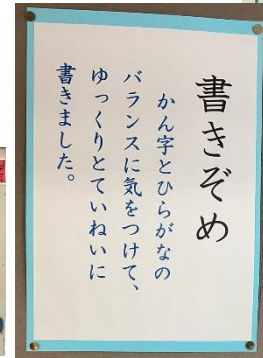 書きぞめ
かん字とひらがなの
バランスに気をつけて、
ゆっくりとていねいに
書きました。